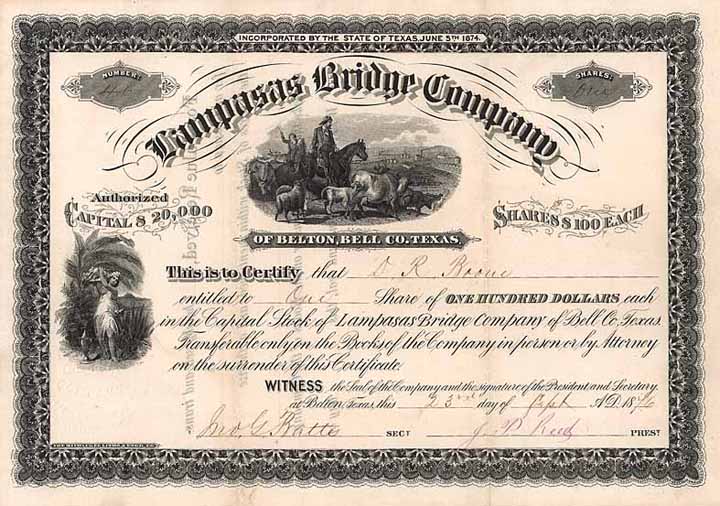 INCORPORATED BY THE STATE OF TEXAS, JUNE 5TH 1874.
NUMBER:
SHARES:
One
Lampasas Bridge Company
Authorized
CAPITAL $ 20,000
SHARES $ 100 EACH
OF BELTON, BELL CO. TEXAS.
This is to Certify that D R Boone
entitled to One Share of ONE HUNDRED DOLLARS each
in the Capital Stock of Lampasas Bridge Company of Bell Co. Texas.
Transferable only on the Books of the Company in person or by Attorney
on the surrender of this Certificate.
WITNESS the Seal of the Company and the signature of the President and Secretary
at Belton, Texas, this 23rd day of Sept A.D. 1876
Jno. G. Batte SECY J. P. Reed PREST